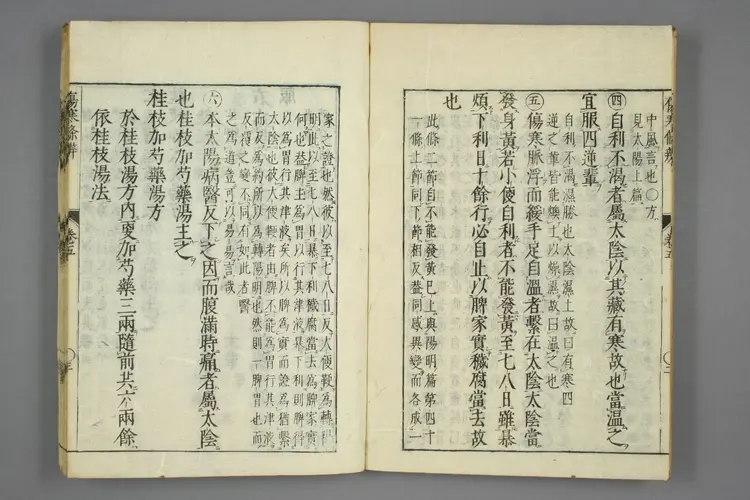 中風言也○方
見太陽上篇
㊃自利不渴者屬太陰以其藏有寒故也當溫之
宜服四逆輩
自利不渴濕勝也太陰濕土故曰有寒四
逆之輩皆能燠土以燥濕故曰溫之也
㊄傷寒脉浮而緩手足自溫者繫在太陰太陰當
發身黃若小便自利者不能發黃至七八日雖暴
煩下利日十餘行必自止以脾家實穢腐當去故
也
此條二節自不能發黃已上與陽明篇第四十
一條上節同下節相反蓋同感異變而各成一
家之證也然彼以至七八日反大便鞕為轉陽
明此以至七八日暴下利穢腐當去為脾家實
何也蓋脾主為胃行其津液暴下利則脾得
以為胃行其津液矣所以脾為實而證為猶繫
太陰也彼大便鞕者由脾不能為胃行其津液
而反為約所以為轉陽明也然則一脾胃也而
反得之變不同有如此者醫
之為道豈可以易易言哉
㊅本太陽病醫反下之因而腹滿時痛者屬太陰
也桂枝加芍藥湯主之
桂枝加芍藥湯方
於桂枝湯方內更加芍藥三兩隨前共六兩餘
依桂枝湯法
傷寒條辨
卷五
傷寒條辨
卷五